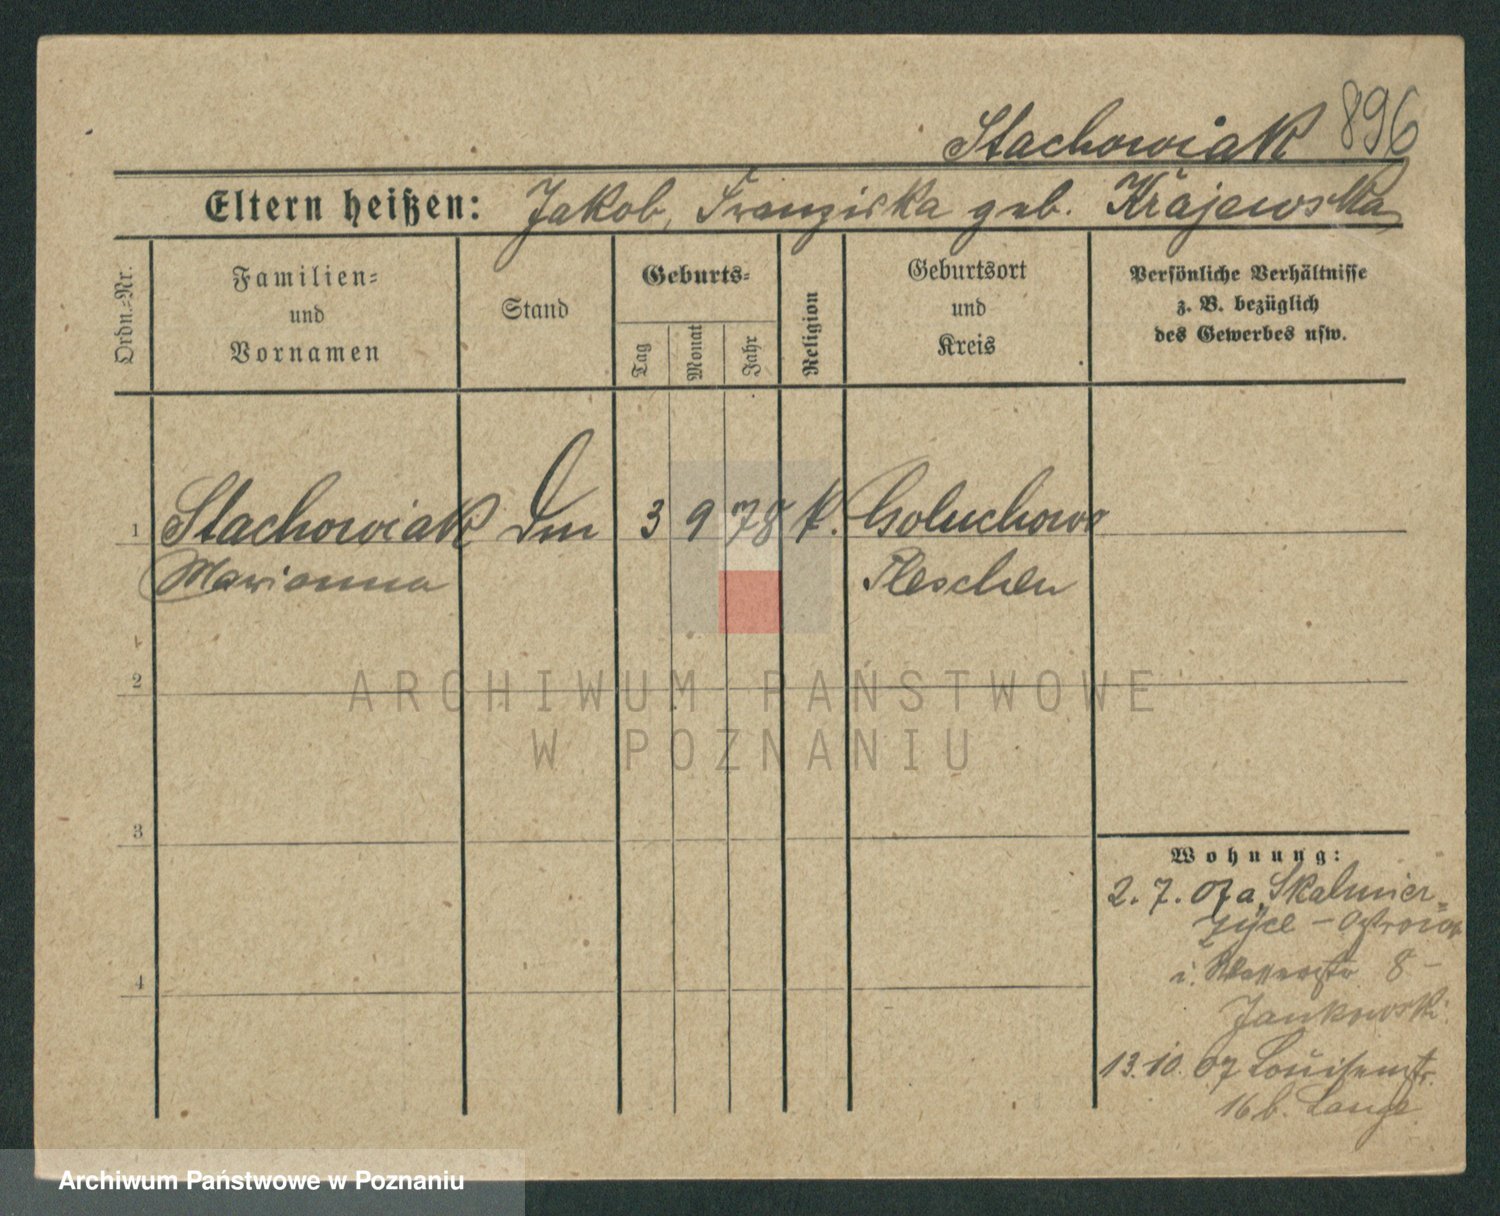 Stachowiak 896
Eltern heißen: Jakob, Franziska geb. Krajewska
Ordn.=Nr.
Familien=
und
Vornamen
Stand
Geburts=
Tag
Monat
Jahr
Religion
Geburtsort
und
Kreis
Persönliche Verhältnisse
z. B. bezüglich
des Gewerbes usw.
1 Stachowiak Dm 3 9 78 k. Goluchowo
Marianna Pleschen
2
ARCHIWUM PAŃSTWOWE
W POZNANIU
3
Wohnung:
2. 7. 07 a. Skalmier=
zyce – Ostrowo
i. 8 –
4
Jankowski
13. 10. 07 Louisenstr.
16 b. Lange
Archiwum Państwowe w Poznaniu